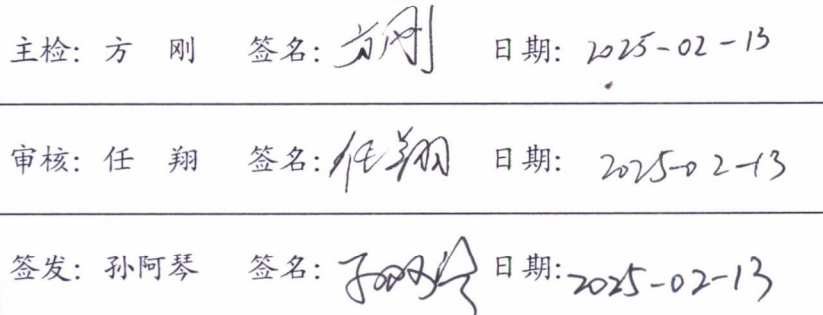 主检: 方 刚 签名: 方刚 日期: 2025-02-13
审核: 任 翔 签名: 任翔 日期: 2025-02-13
签发: 孙阿琴 签名: 孙阿琴 日期: 2025-02-13